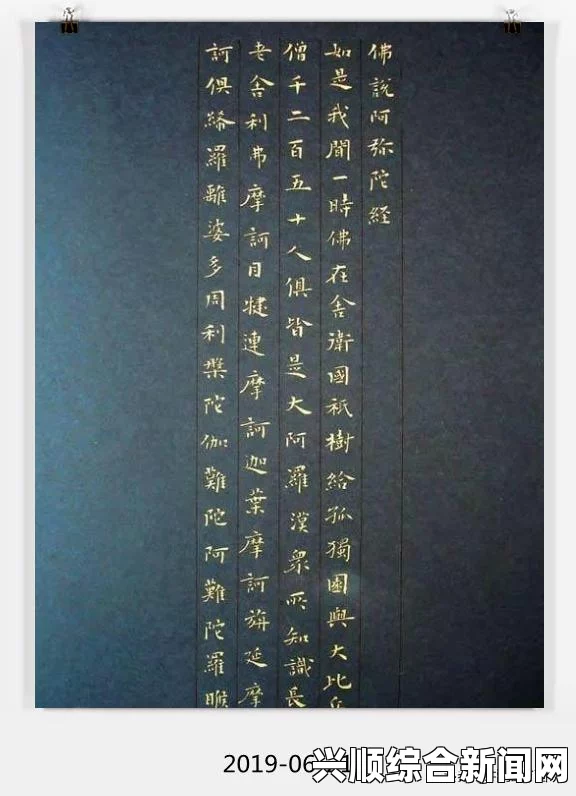 佛說阿弥陀経
如是我聞一時佛在舍衛國祇樹給孤獨園與大比丘
僧千二百五十人俱皆是大阿羅漢衆所知識長
老舍利弗摩訶目犍連摩訶迦葉摩訶旃延摩
訶俱絺羅離婆多周利槃陀伽難陀阿難陀羅睺
2019-06
兴顺综合新闻网